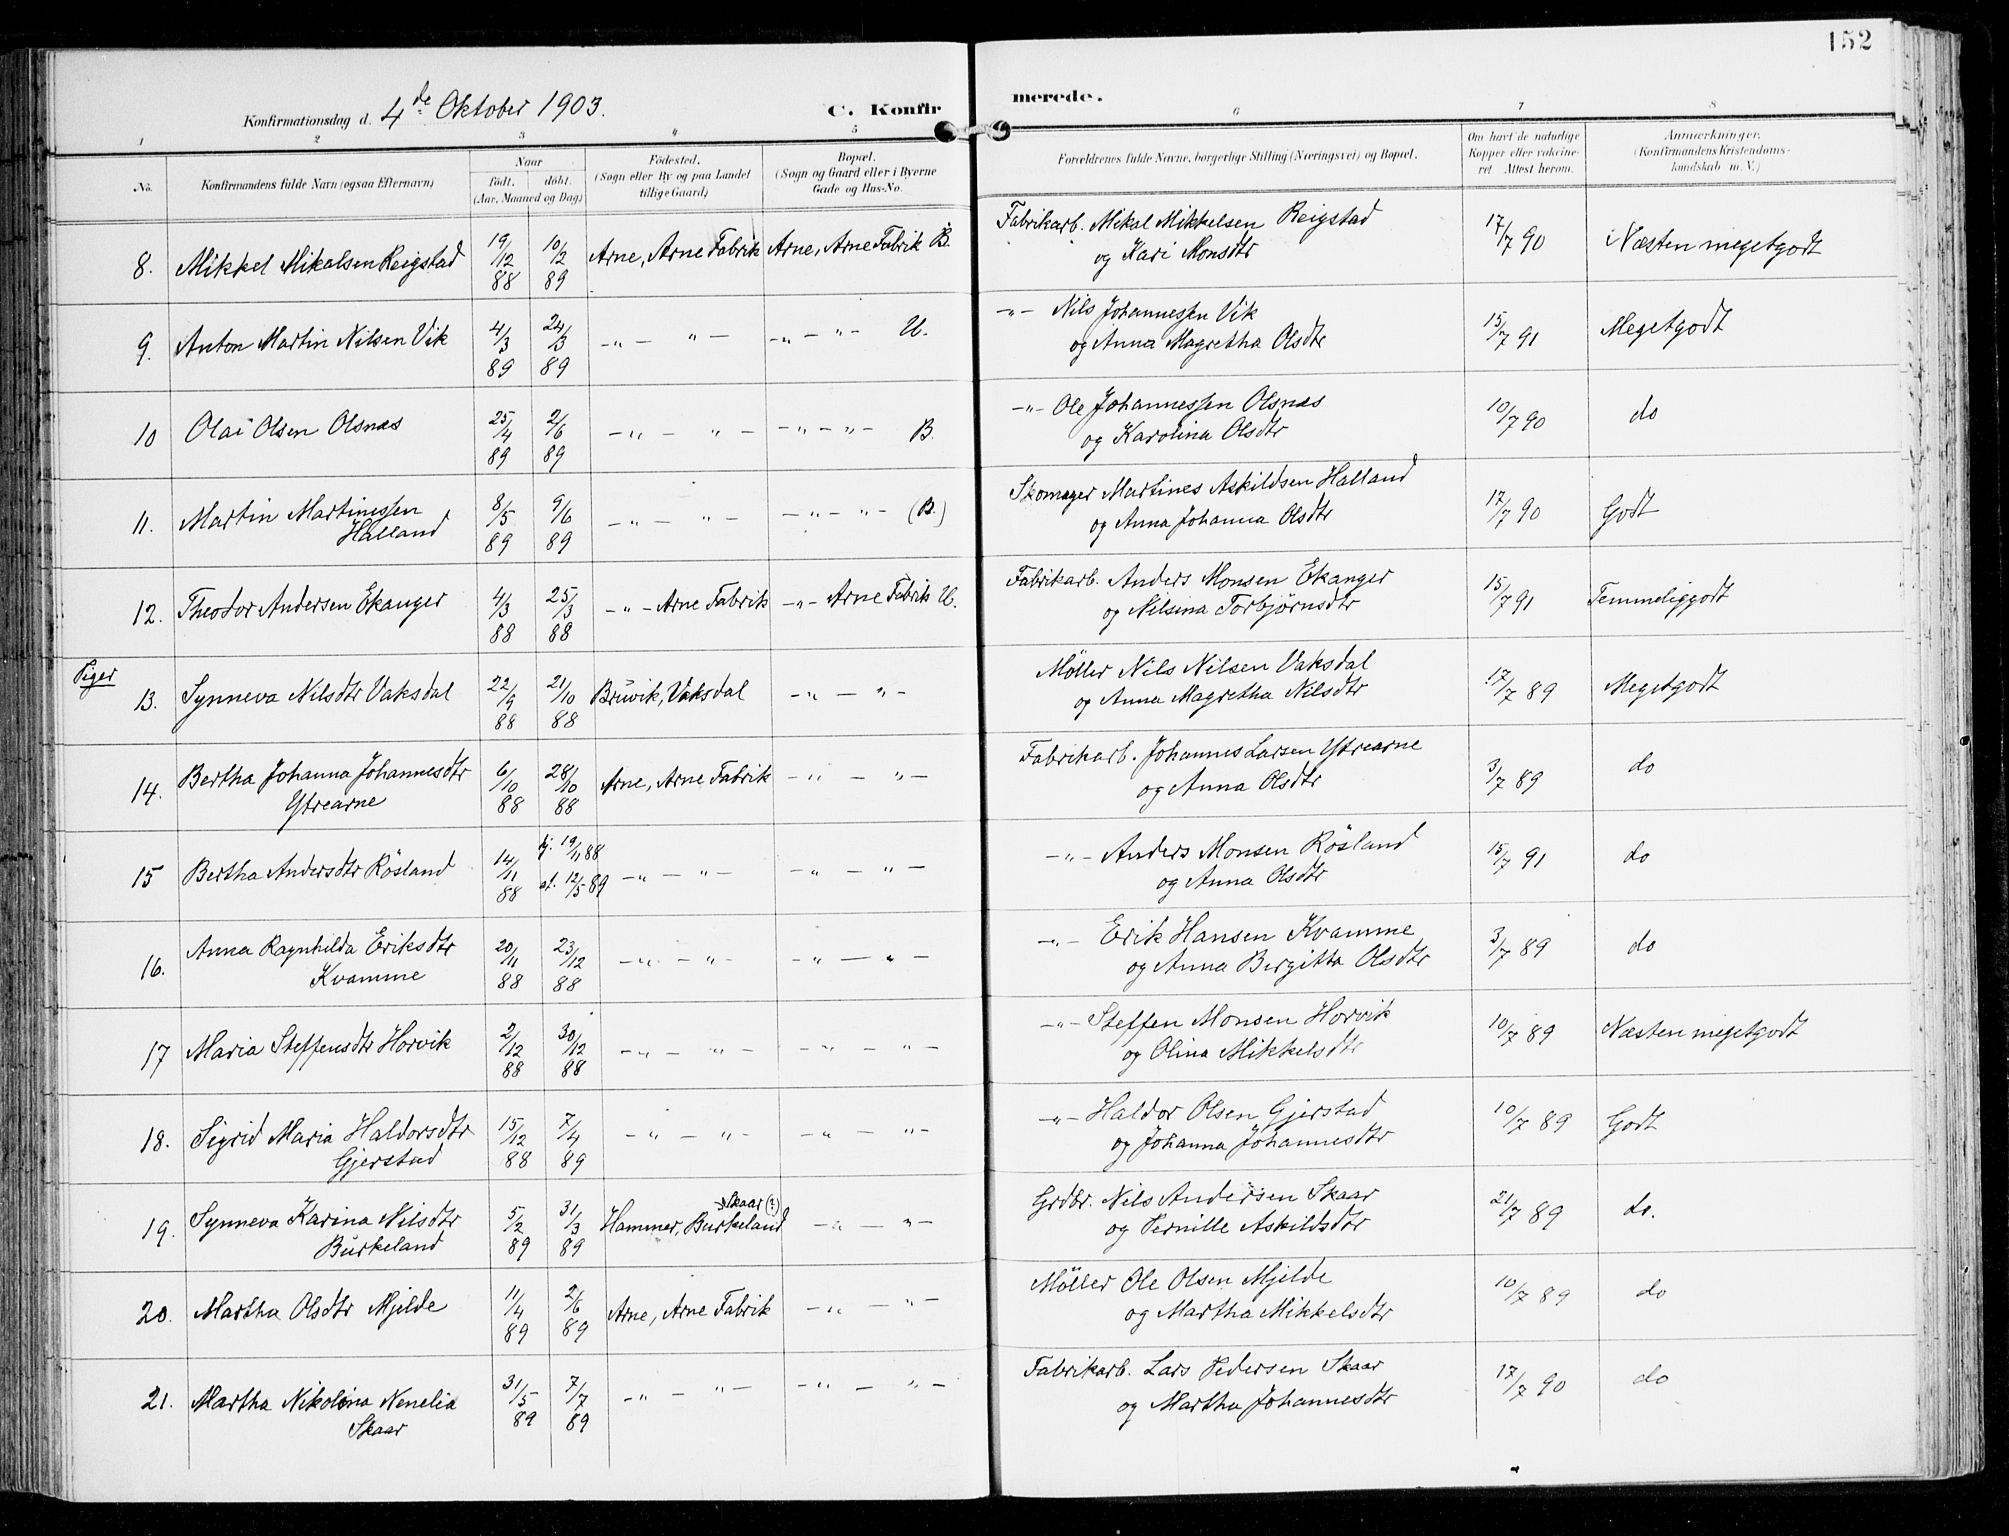 152
Konfirmationsdag d. 4de Oktober 1903. C. Konfirmerede.
1 2 3 4 5 6 7 8
No. Konfirmandens fulde Navn (ogsaa Efternavn) Naar födt. döbt. (Aar, Maaned og Dag) Födested. (Sogn eller By og paa Landet tillige Gaard) Bopæl. (Sogn og Gaard eller i Byerne Gade og Hus-No. Forældrenes fulde Navne, borgerlige Stilling (Næringsvei) og Bopæl. Om havt de naturlige Kopper eller vakcineret. Attest herom. Anmærkninger. (Konfirmandens Kristendomskundskab m. V.)
8. Mikkel Mikalsen Reigstad 19/12 88 10/2 89 Arne, Arne Fabrik Arne, Arne Fabrik B. Fabrikarb. Mikal Mikkelsen Reigstad 17/7 90 Næsten megetgodt
og Kari Monsdtr
9. Anton Martin Nilsen Vik 4/3 89 24/3 89 -"- "- -"- "- U. -"- Nils Johannessen Vik 15/7 91 Megetgodt
og Anna Magretha Olsdtr
10 Olai Olsen Olsnæs 25/4 89 2/6 89 -"- "- -"- "- B. -"- Ole Johannessen Olsnæs 10/7 90 do
og Karolina Olsdtr
11. Martin Martinessen 8/5 89 9/6 89 -"- "- -"- "- (B.) Skomager Martines Askildsen Halland 17/7 90 Godt
Halland og Anna Johanna Olsdtr
12. Theodor Andersen Ekanger 4/3 88 25/3 88 -"- Arne Fabrik -"- Arne Fabrik U. Fabrikarb. Anders Monsen Ekanger 15/7 91 Temmeliggodt
og Nilsina Torbjørnsdtr
Piger
13. Synneva Nilsdtr Vaksdal 22/9 88 21/10 88 Bruvik, Vaksdal -"- "- Møller Nils Nilsen Vaksdal 17/7 89 Megetgodt
og Anna Magretha Nilsdtr
14. Bertha Johanna Johannesdtr 6/10 88 28/10 88 Arne, Arne Fabrik -"- "- Fabrikarb. Johannes Larsen Ytrearne 3/7 89 do
Ytrearne og Anna Olsdtr
15 Bertha Andersdtr Rösland 14/11 88 hj. 19/11 88 af. 12/5 89 -"- "- -"- "- -"- Anders Monsen Rösland 15/7 91 do
og Anna Olsdtr
16. Anna Ragnhilda Eriksdtr 20/11 88 23/12 88 -"- "- -"- "- -"- Erik Hansen Kvamme 3/7 89 do
Kvamme og Anna Bergitta Olsdtr
17 Maria Steffensdtr Horvik 2/12 88 30/12 88 -"- "- -"- "- -"- Steffen Monsen Horvik 10/7 89 Næsten megetgodt
og Olina Mikkelsdtr
18. Sigrid Maria Haldorsdtr 15/12 88 7/4 89 -"- "- -"- "- -"- Haldor Olsen Gjerstad 10/7 89 Godt
Gjerstad og Johanna Johannesdtr
19. Synneva Karina Nilsdtr 5/2 89 31/3 89 Hammer, Burkeland Skaar (?) -"- "- Grdbr. Nils Andersen Skaar 21/7 89 do.
Burkeland og Pernille Askildsdtr
20. Martha Olsdtr Mjelde 11/4 89 2/6 89 Arne, Arne Fabrik -"- "- Møller Ole Olsen Mjelde 10/7 89 do
og Martha Mikkelsdtr
21. Martha Nikolina Nenelia 31/5 89 7/7 89 -"- "- -"- "- Fabrikarb. Lars Pedersen Skaar 17/7 90 do
Skaar og Martha Johannesdtr